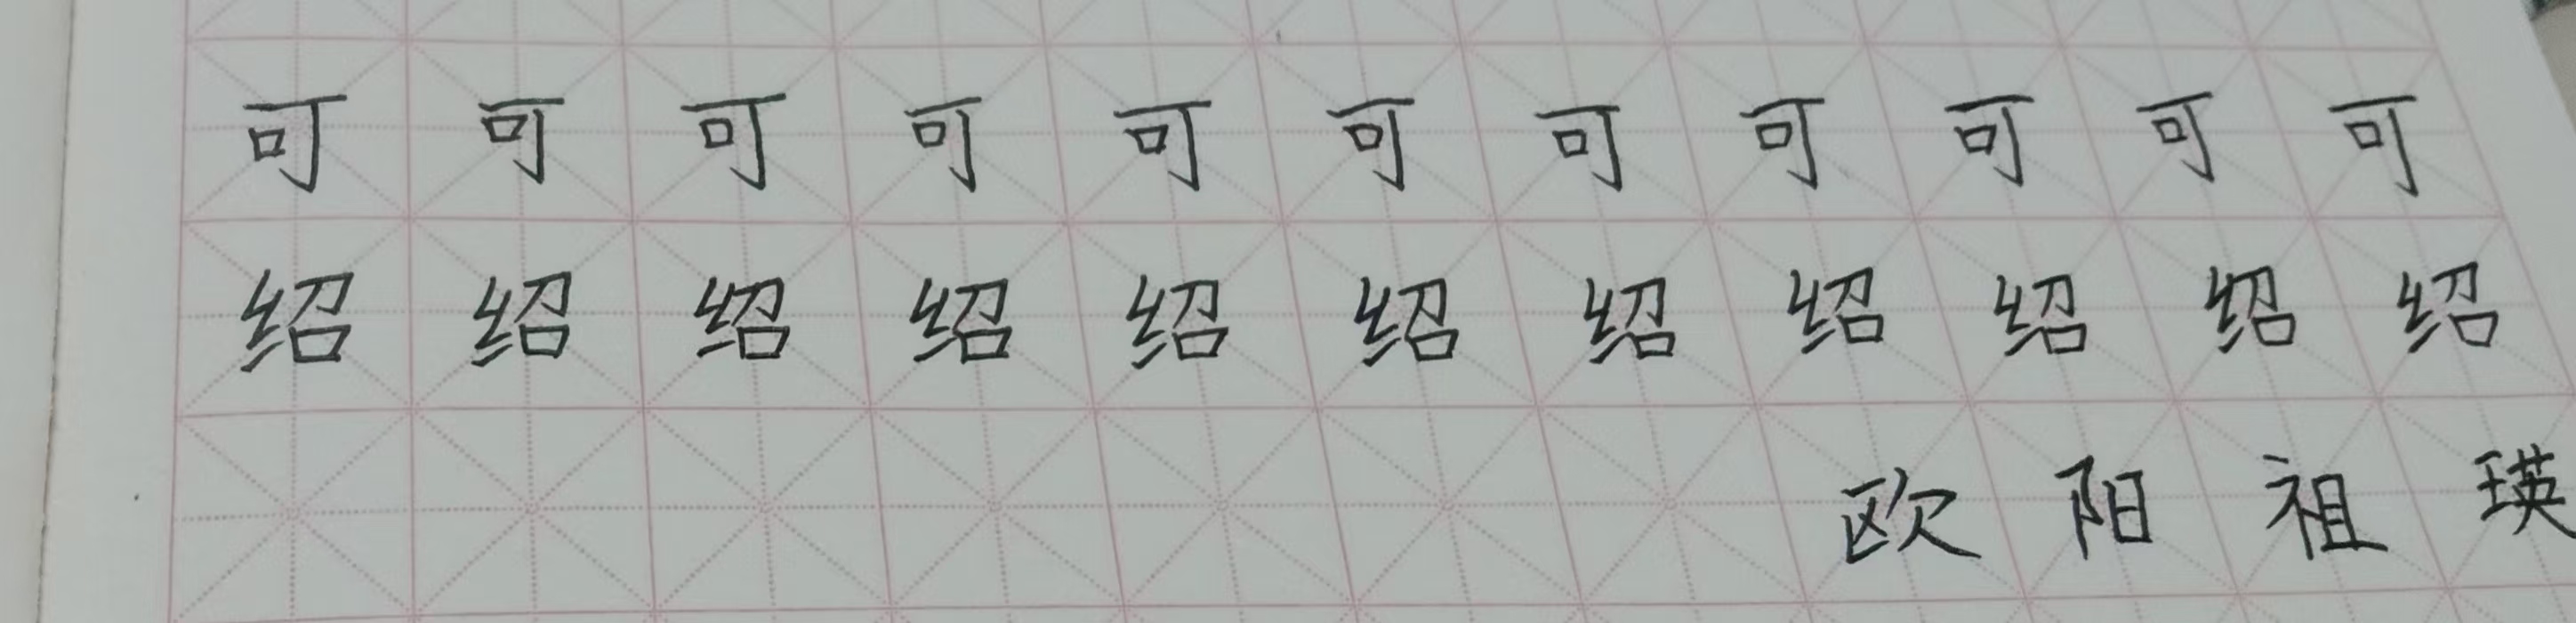 可可可可可可可可可可可
绍绍绍绍绍绍绍绍绍绍绍
欧阳祖瑛